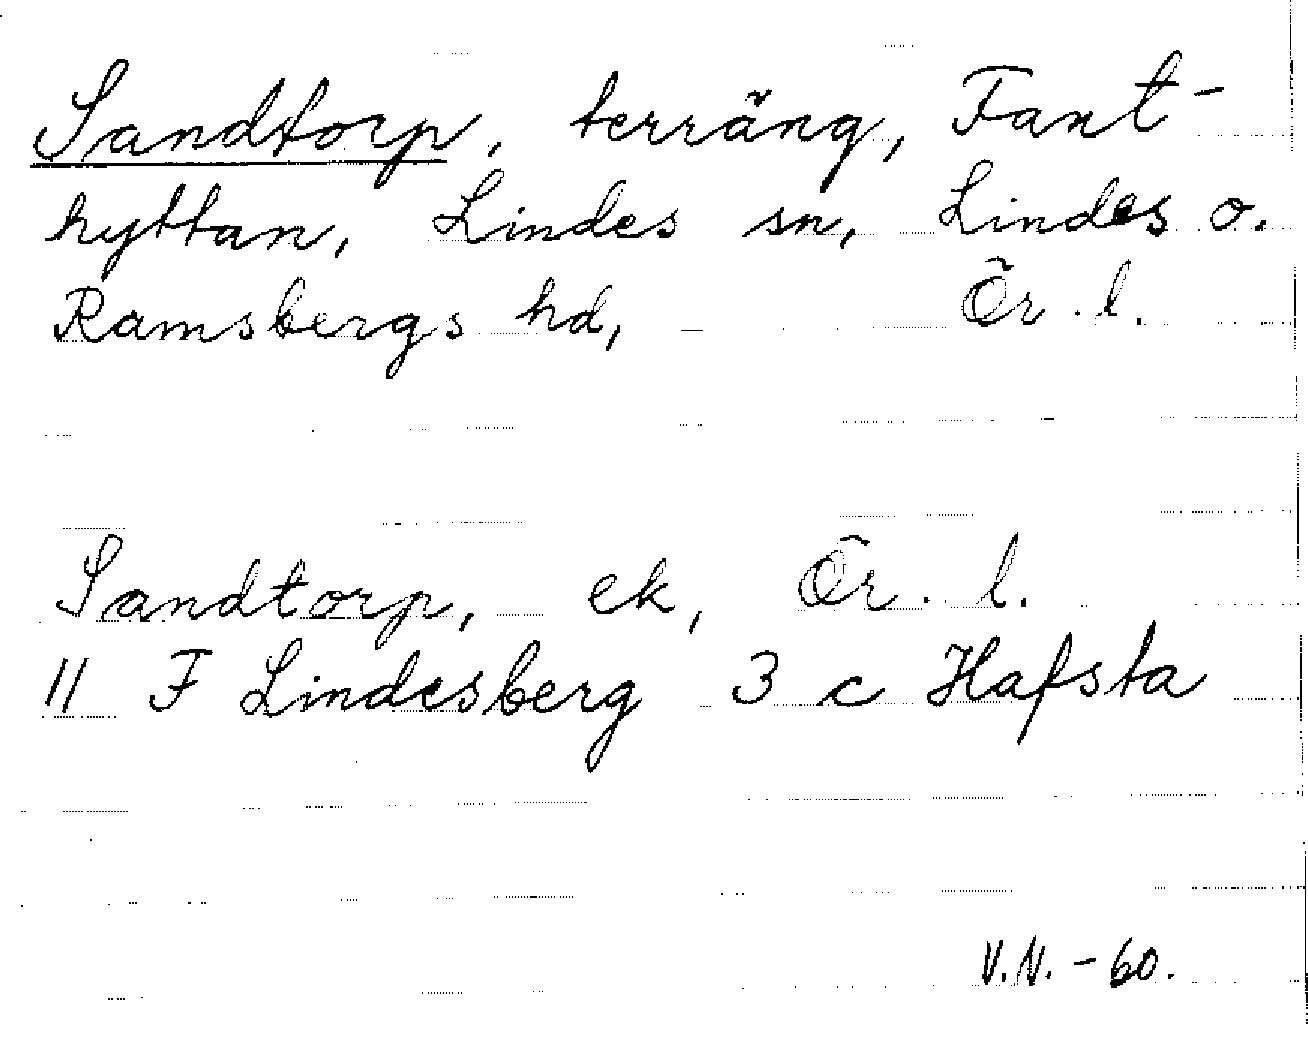 Sandtorp, terräng, Fant-
hyttan, Lindes sn, Lindes o.
Ramsbergs hd, Ör. l.
Sandtorp, ek, Ör. l.
11 F Lindesberg 3 c Hafsta
V.N. - 60.